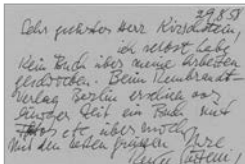 29.8.58
Sehr geehrter Herr Kirschstein,
ich selbst habe
kein Buch über meine Arbeiten
geschrieben. Beim Rembrandt-
Verlag Berlin erschien vor
Zeit ein Buch mit
etc über mich
Mit den besten Grüssen Ihre